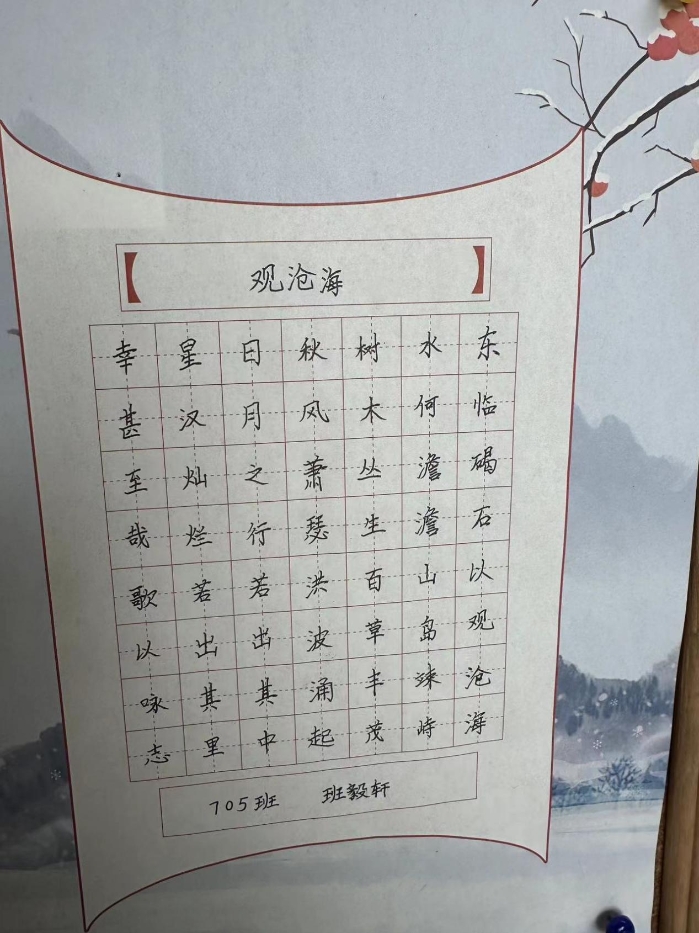 观沧海
东临碣石以观沧海
水何澹澹山岛竦峙
树木丛生百草丰茂
秋风萧瑟洪波涌起
日月之行若出其中
星汉灿烂若出其里
幸甚至哉歌以咏志
705班 班毅轩